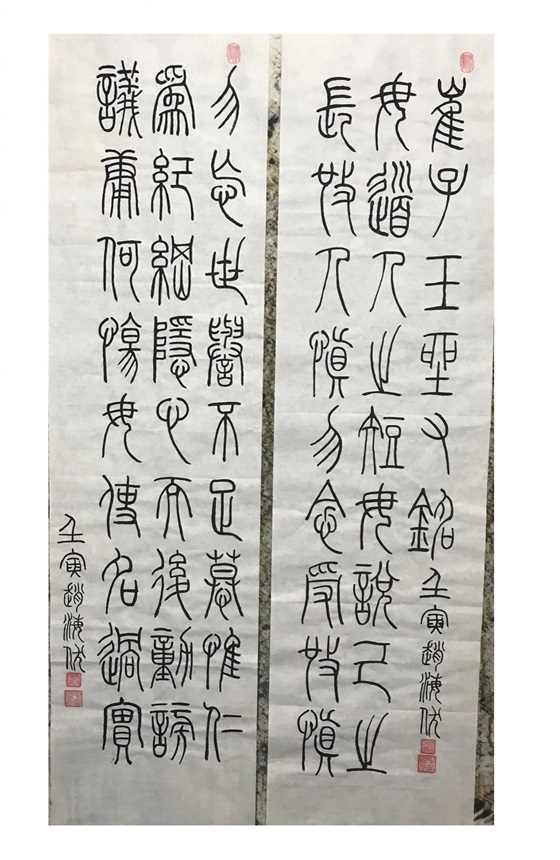 崔子玉座右銘
壬寅趙海
毋道人之短毋說己之
長施人慎勿念受施慎
勿忘世譽不足慕惟仁
為紀綱隱心而後動謗
議庸何傷毋使名過實
壬寅趙海